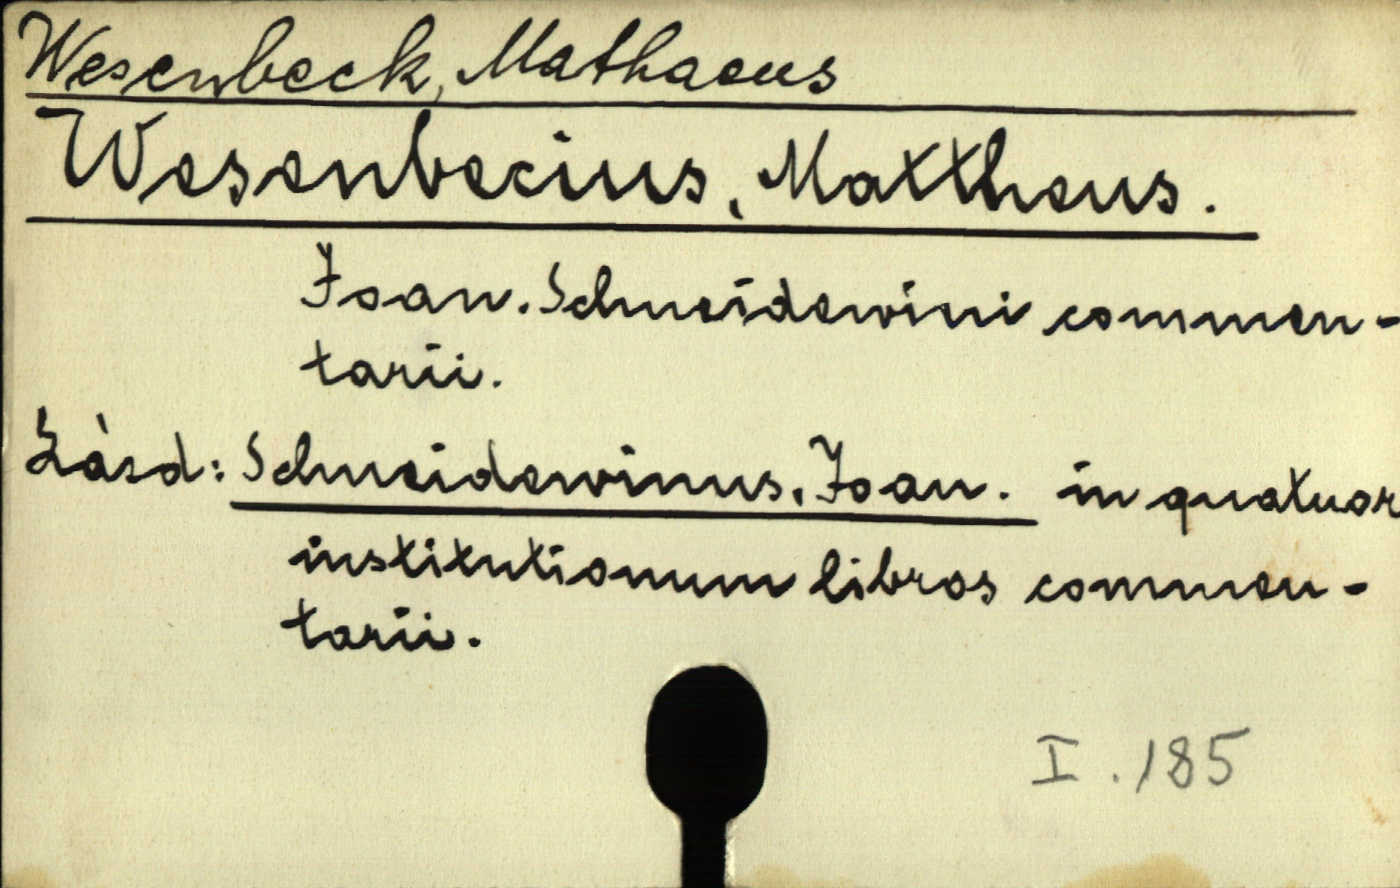 Wesenbeck, Mathaeus
Wesenbecius, Mattheus.
Joan. Schneidewini commen-
tarii.
Lásd: Schneidewinus, Joan. in quatuor
institutionum libros commen-
tarii.
I. 185